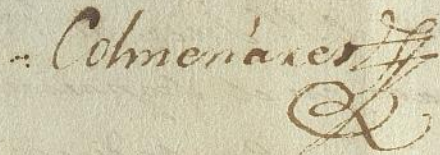 Colmenáres